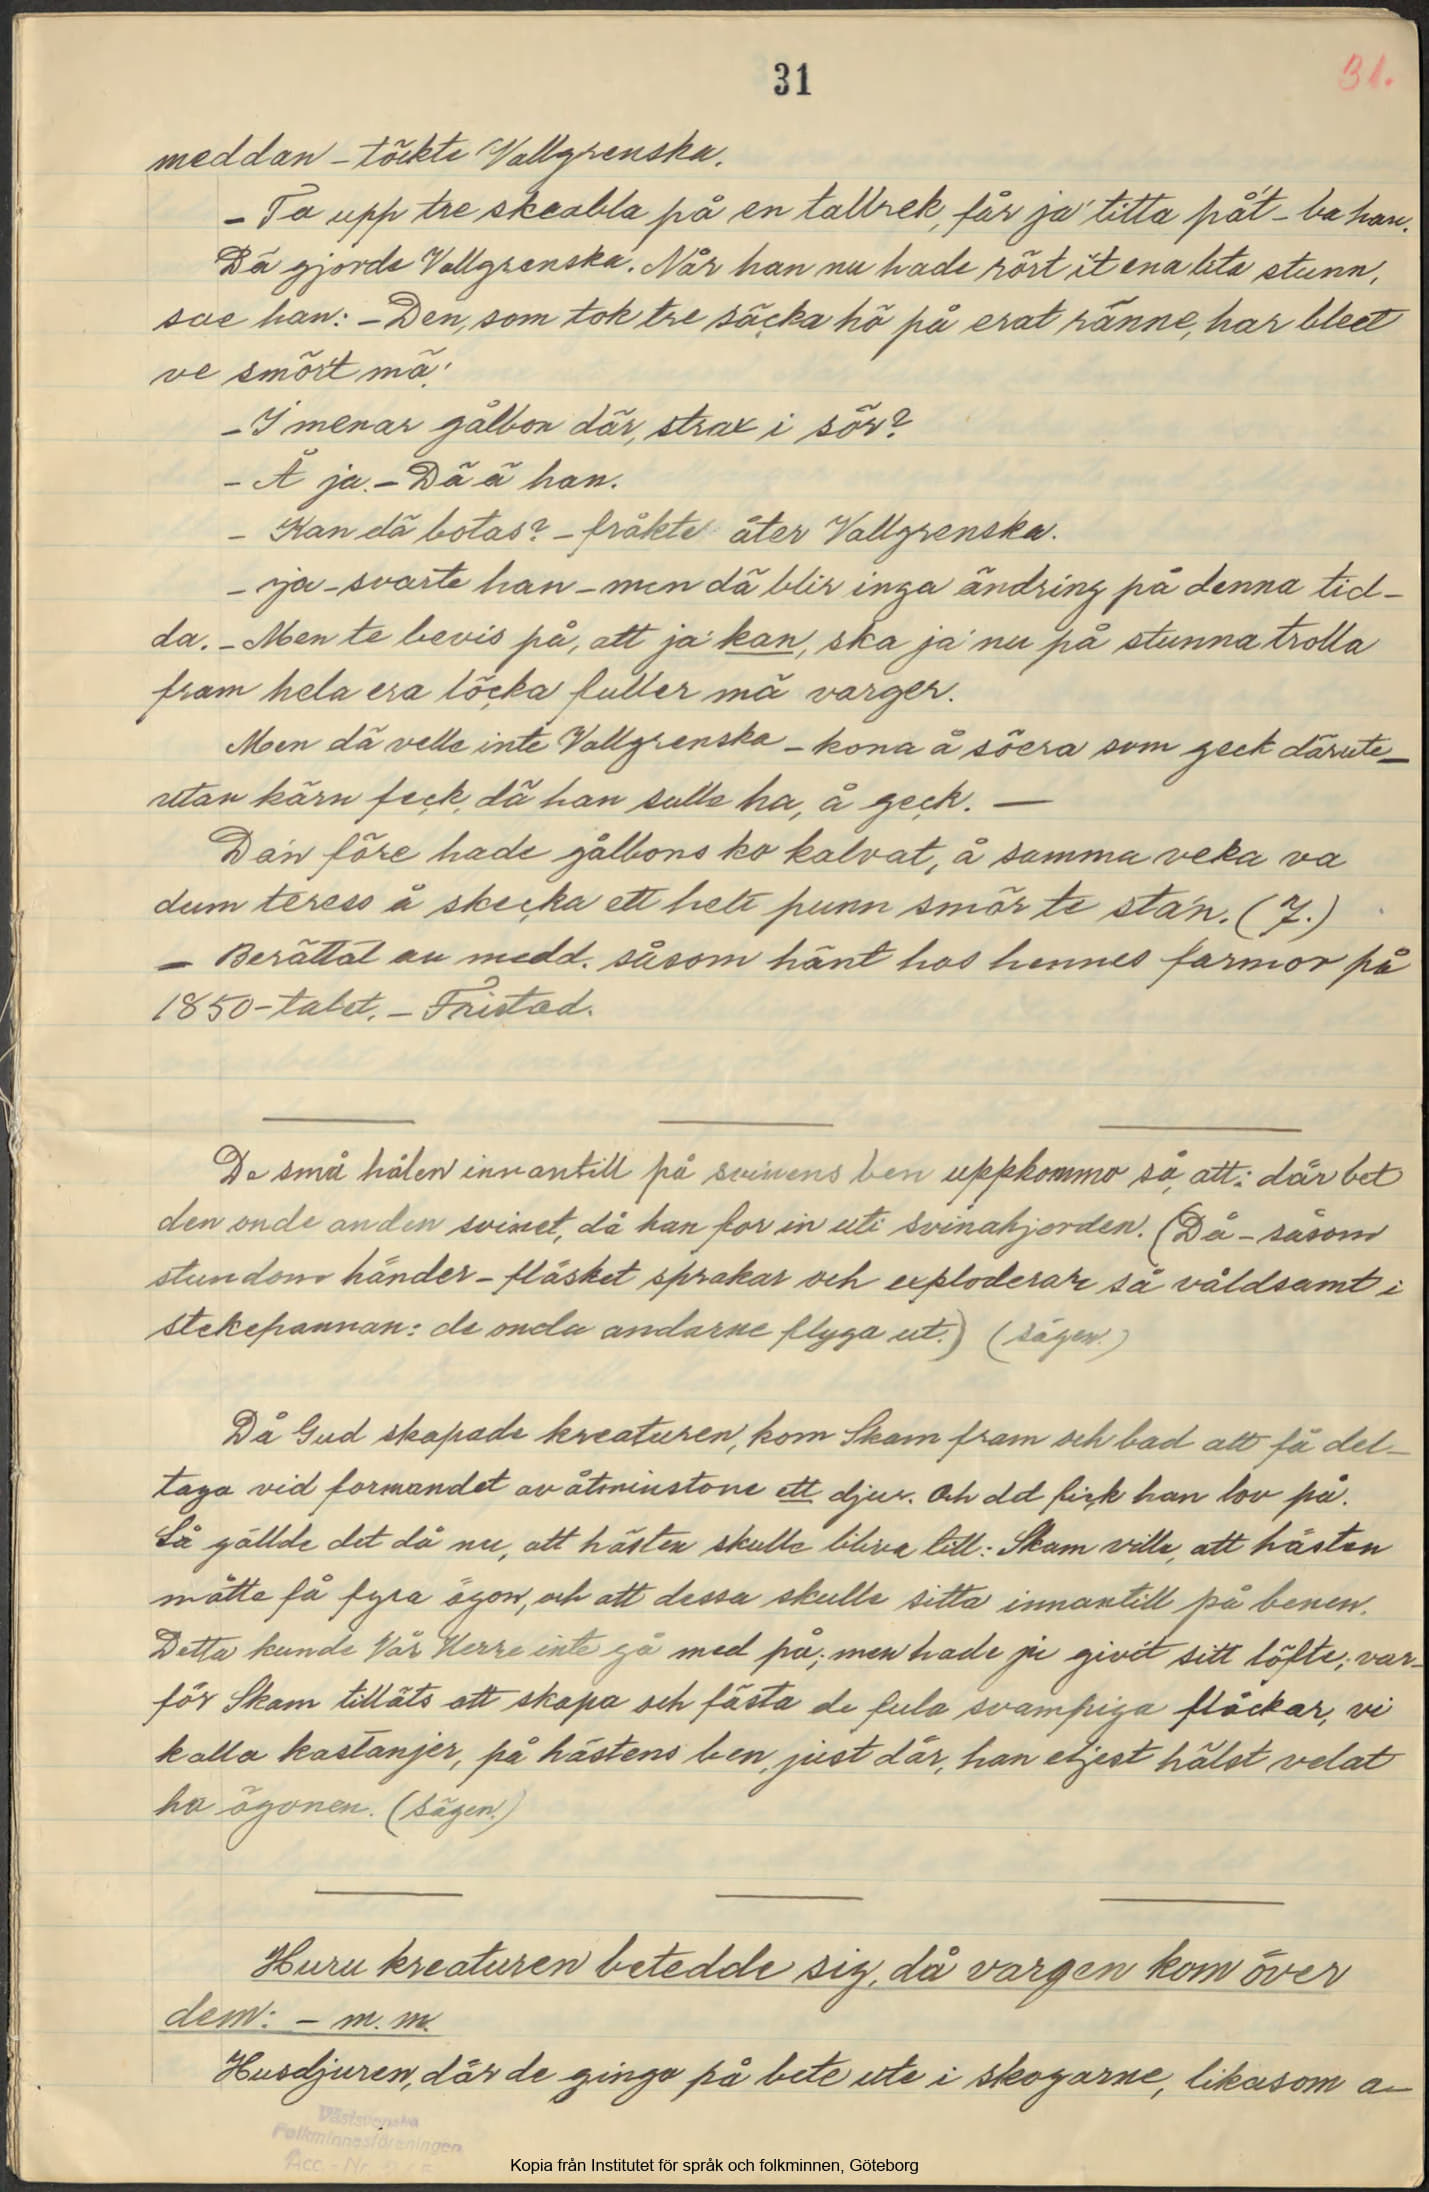 31
31.
meddan – töckte Vallgrenska.
– Ta upp tre skeabla på en tallrek, får ja' titta på't – ba han.
Dä gjorde Vallgrenska. När han nu hade rört i't ena lita stunn,
sae han: – Den, som tok tre säcka hö på erat ränne, har bleet
ve smört mä!
– I menar gålbon där, strax i sör?
– Å ja. – Dä ä han.
– Kan dä botas? – fråkte åter Vallgrenska.
– Ja – svarte han – men dä blir inga ändring på denna tid-
da. – Men te bevis på, att ja' kan, ska ja' nu på stunna trolla
fram hela era löcka fuller mä varger.
Men dä velle inte Vallgrenska – kona å söera som geck därute –
utan kärn feck, dä han sulle ha, å geck. —
Da'n före hade gålbons ko kalvat, å samma veka va
dum teress å skecka ett helt punn smör te sta'n. (7.)
– Berättat av medd. såsom hänt hos hennes farmor på
1850-talet. – Fristad.
De små hålen innantill på svinens ben uppkommo så, att: där bet
den onde anden svinet, då han for in uti svinahjorden. (Då – såsom
stundom händer – fläsket sprakar och exploderar så våldsamt i
stekepannan: de onda andarne flyga ut.) (sägen.)
Då Gud skapade kreaturen, kom Skam fram och bad att få del-
taga vid formandet av åtminstone ett djur. Och det fick han lov på.
Så gällde det då nu, att hästen skulle bliva till: Skam ville, att hästen
måtte få fyra ögon, och att dessa skulle sitta innantill på benen.
Detta kunde Vår Herre inte gå med på; men hade ju givit sitt löfte; var-
för Skam tilläts att skapa och fästa de fula svampiga fläckar, vi
kalla kastanjer, på hästens ben, just där, han eljest hälst velat
ha ögonen. (sägen.)
Huru kreaturen betedde sig, då vargen kom över
dem: – m. m.
Husdjuren, där de gingo på bete ute i skogarne, likasom a-
Västsvenska
Folkminnesföreningen
Acc. - Nr
Kopia från Institutet för språk och folkminnen, Göteborg